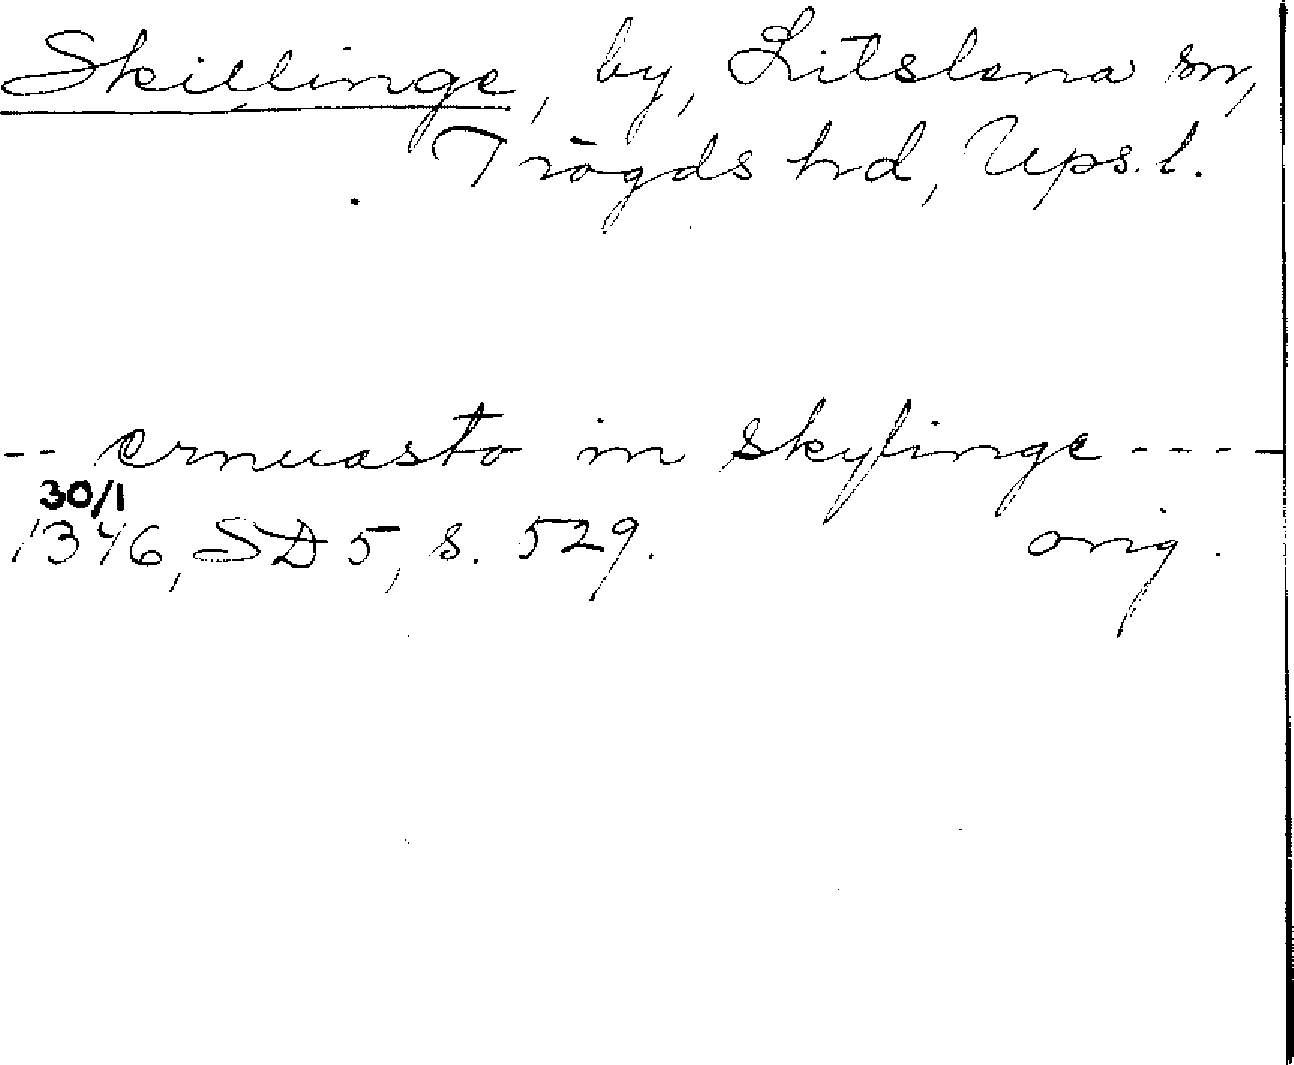 Skillinge, by, Litslena sn,
Trögds hd, Ups. l.
-- ernuasto in skyllinge ----
30/1
1346, SD 5, s. 529. orig.